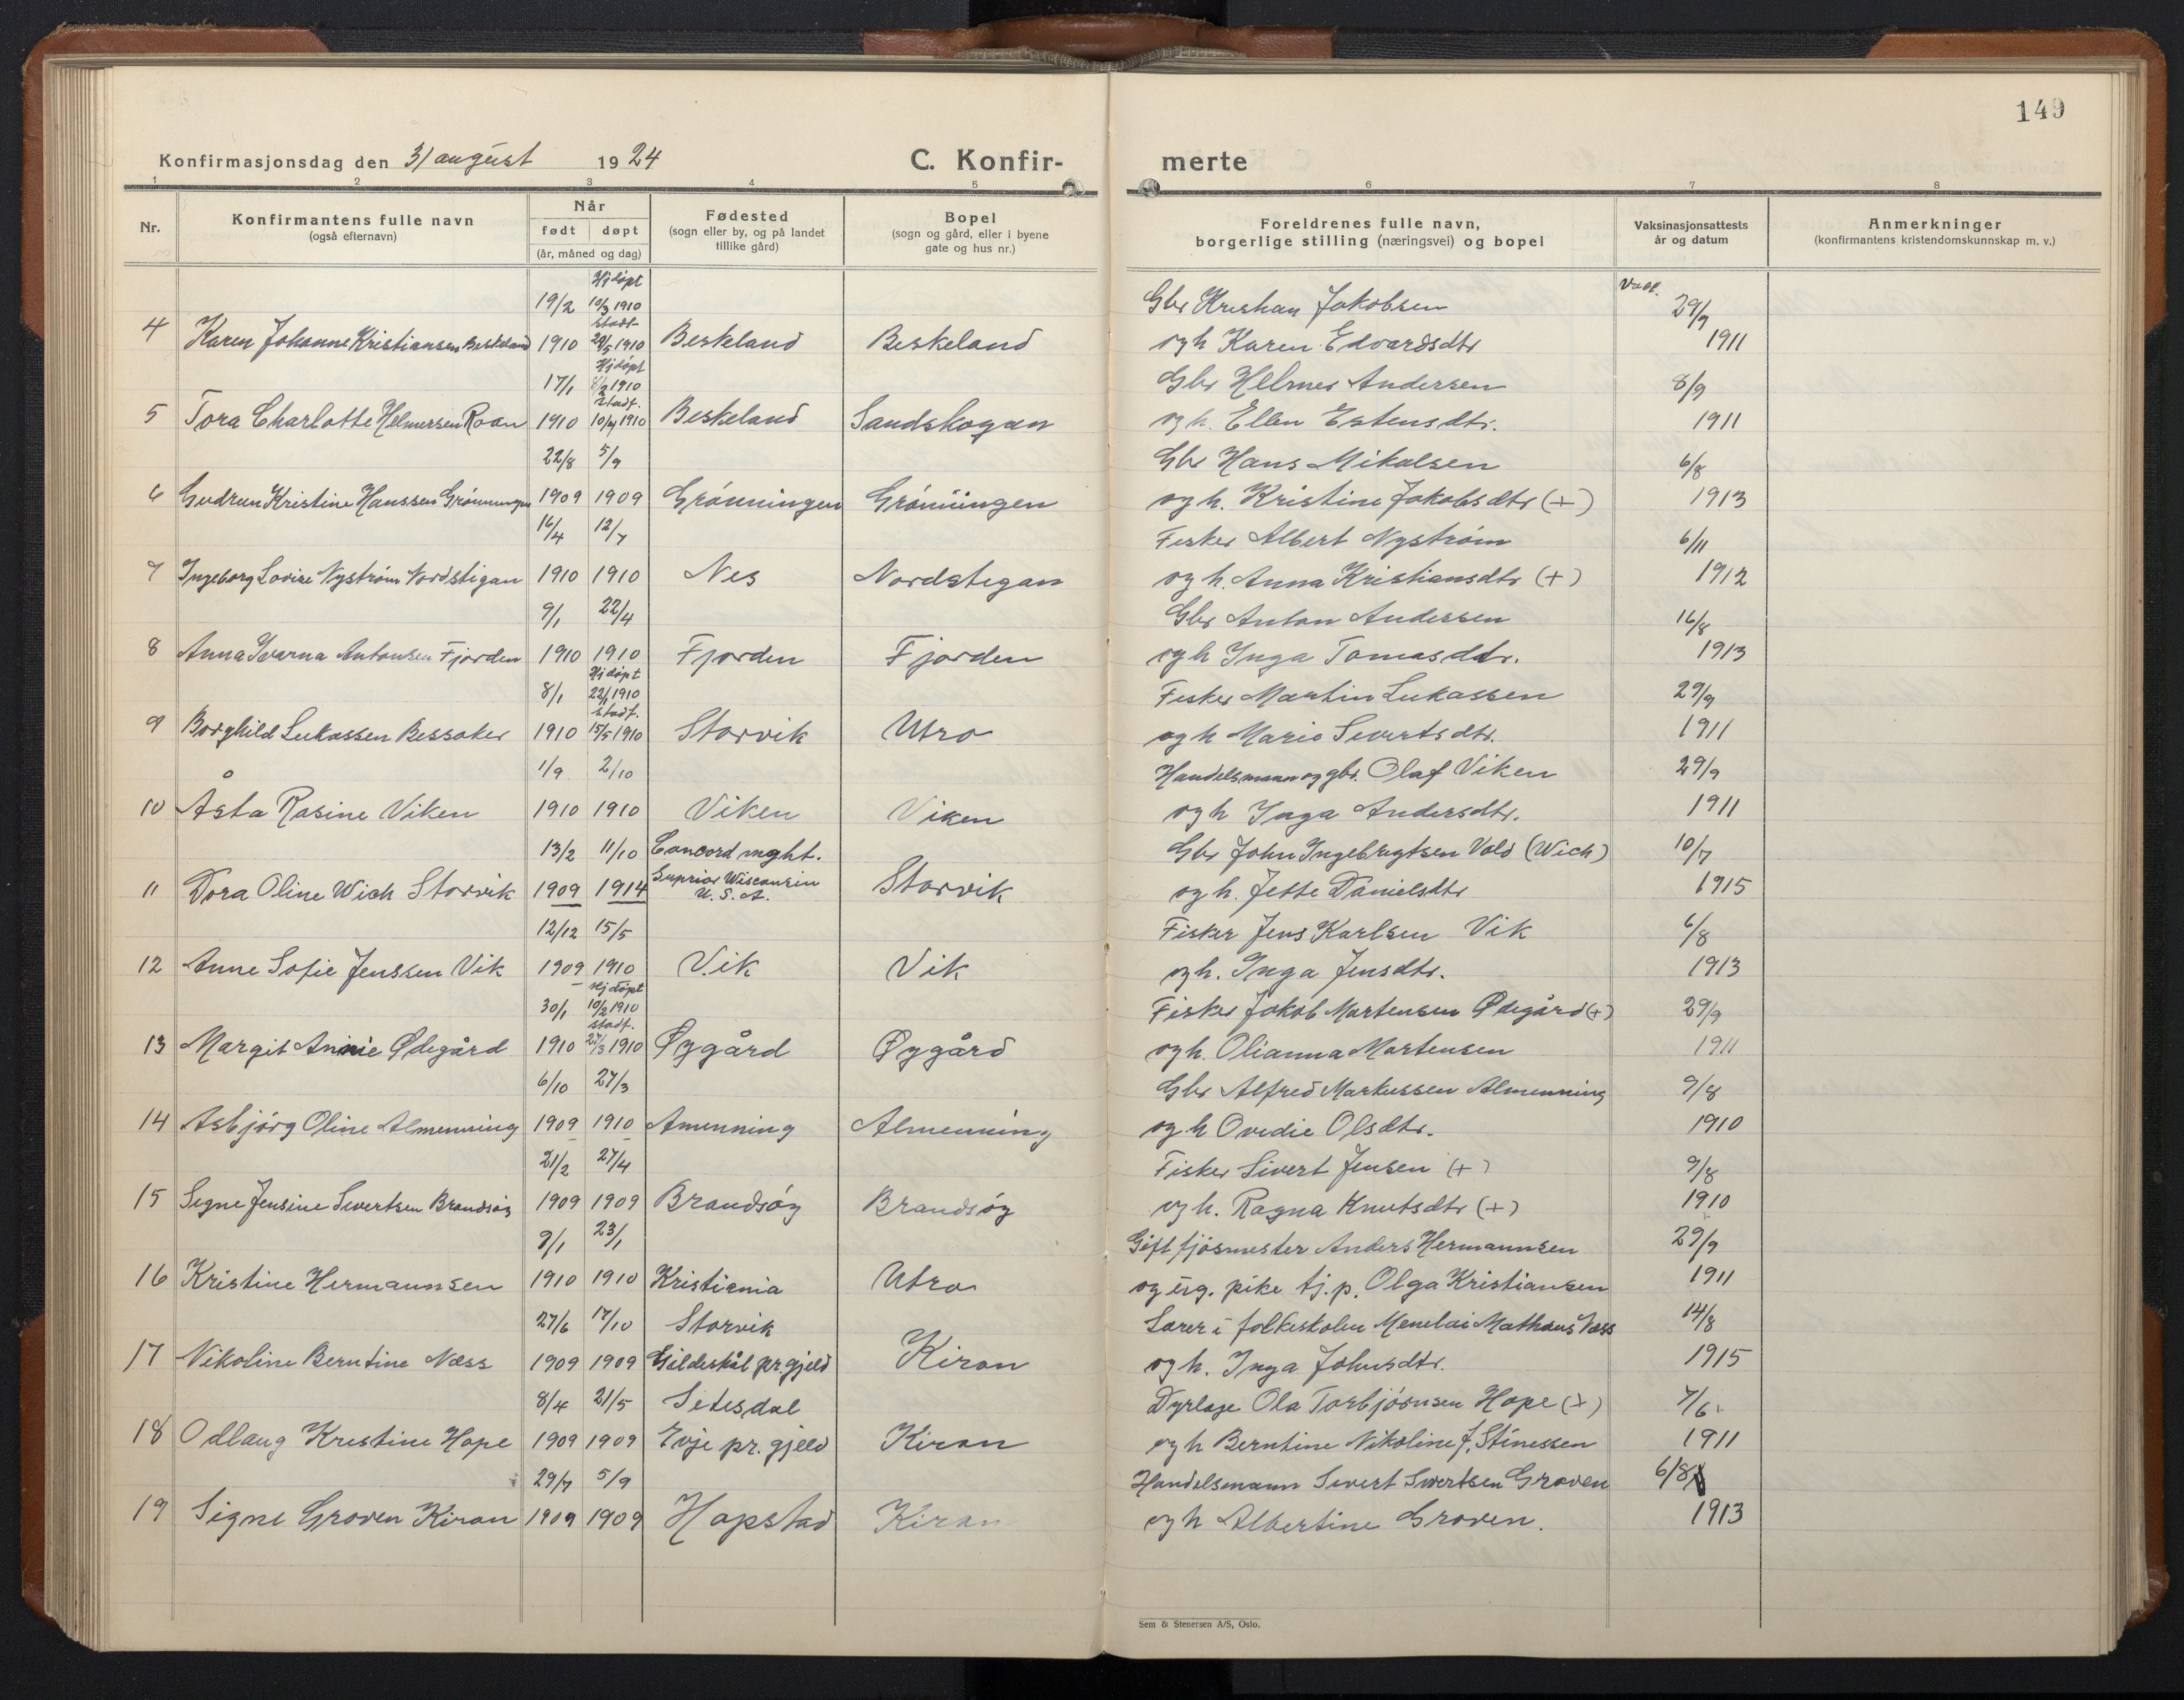 149
Konfirmasjonsdag den 31 august 1924
C. Konfir-
merte
1 2 3 4 5 6 7 8
Nr.
Konfirmantens fulle navn
(også efternavn)
Når
født døpt
(år, måned og dag)
Fødested
(sogn eller by, og på landet
tillike gård)
Bopel
(sogn og gård, eller i byene
gate og hus nr.)
Foreldrenes fulle navn,
borgerlige stilling (næringsvei) og bopel
Vaksinasjonsattests
år og datum
Anmerkninger
(konfirmantens kristendomskunnskap m. v.)
Hj døpt
19/2 10/3 1910 Gbr Kristian Jakobsen Vacc. 29/9
stadf.
4 Karen Johanne Kristiansen Beskeland 1910 29/5 1910 Beskeland Beskeland og h Karen Edvardsdtr 1911
Hj døpt
17/1 8/2 1910 Gbr Helmer Andersen 8/9
Stadf.
5 Tora Charlotte Helmersen Roan 1910 10/4 1910 Beskeland Sandskogan og h. Ellen Estensdtr. 1911
22/8 5/9 Gbr Hans Mikalsen 6/8
6 Gudrun Kristine Hanssen Grønningen 1909 1909 Grønningen Grønningen og h. Kristine Jakobsdtr (+) 1913
16/4 12/7 Fisker Albert Nystrøm 6/11
7 Ingeborg Lovise Nystrøm Nordstigan 1910 1910 Nes Nordstegan og h. Anna Kristiansdtr (+) 1912
9/1 22/4 Gbr Anton Andersen 16/8
8 Anna Ivarna Antonsen Fjorden 1910 1910 Fjorden Fjorden og h Inga Tomasdtr. 1913
Hj døpt
8/1 22/1 1910 Fisker Martin Lukassen 29/9
stadf.
9 Borghild Lukassen Bessaker 1910 15/5 1910 Storvik Utro og h Marie Sivertsdtr. 1911
1/9 2/10 Handelsmann og gbr. Olaf Viken 29/9
10 Åsta Rasine Viken 1910 1910 Viken Viken og h Inga Andersdtr. 1911
13/2 11/10 Concord mght. Gbr John Ingebrigtsen Vold (Wich) 10/7
11 Dora Oline Wich Storvik 1909 1914 Suprior Wisconsin Storvik og h. Jette Danielsdtr 1915
U. S. A.
12/12 15/5 Fisker Jens Karlsen Vik 6/8
12 Anne Sofie Jenssen Vik 1909 1910 Vik Vik og h. Inga Jensdtr. 1913
Hj døpt
30/1 10/2 1910 Fisker Jakob Mortensen Ødegård (+) 29/9
stadf.
13 Margit Annie Ødegård 1910 27/3 1910 Øygård Øygård og h. Olianna Mortensen 1911
6/10 27/3 Gbr Alfred Markussen Almenning 9/8
14 Asbjørg Oline Almenning 1909 1910 Amenning Almenning og h Ovedie Olsdtr. 1910
21/2 27/4 Fisker Sivert Jensen (+) 9/8
15 Signe Jensine Sivertsen Brandsøy 1909 1909 Brandsøy Brandsøy og h. Ragna Knutsdtr (+) 1910
9/1 23/1 Gift fjøsmester Anders Hermannsen 29/9
16 Kristine Hermannsen 1910 1910 Kristiania Utro og ug. pike tj. p. Olga Kristiansen 1911
27/6 17/10 Storvik Lærer i folkeskolen Menelai Mathæus Næss 14/8
17 Nikoline Berntine Næss 1909 1909 Gildeskål pr.gjeld Kiran og h. Inga Johnsdtr. 1915
8/4 21/5 Setesdal Dyrlæge Ola Torbjørnsen Hope (+) 7/6
18 Odlaug Kristine Hope 1909 1909 Evje pr. gjeld Kiran og h Berntine Nikoline J. Stinessen 1911
29/7 5/9 Handelsmann Sivert Sivertsen Groven 6/8
19 Signe Groven Kiran 1909 1909 Hopstad Kiran og h Albertine Groven. 1913
Sem & Stenersen A/S, Oslo.